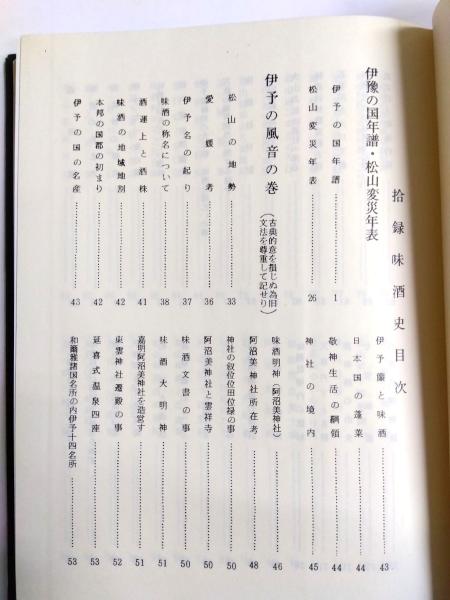 拾録味酒史目次
伊豫の国年譜・松山変災年表
伊予の国年譜……………1
松山変災年表……………26
伊予の風音の巻(古典的意を損じぬ為旧文法を尊重して記せり)
松山の地勢……………33
愛媛考……………36
伊予名の起り……………37
味酒の称名について……………38
酒運上と酒株……………41
味酒の地域地別……………42
本邦の国郡の初まり……………42
伊予の国の名産……………43
伊予簾と味酒……………43
日本国の蓬莱……………44
敬神生活の綱領……………44
神社の境内……………45
味酒明神(阿沼美神社)……………46
阿沼美神社所在考……………48
神社の叙位位田位禄の事……………50
阿沼美神社と雲祥寺……………50
味酒文書の事……………50
味酒大明神……………51
嘉明阿沼美神社を造営す……………51
東雲神社遷殿の事……………52
延喜式温泉四座……………53
和爾雅諸国名所の内伊予十四名所……………53